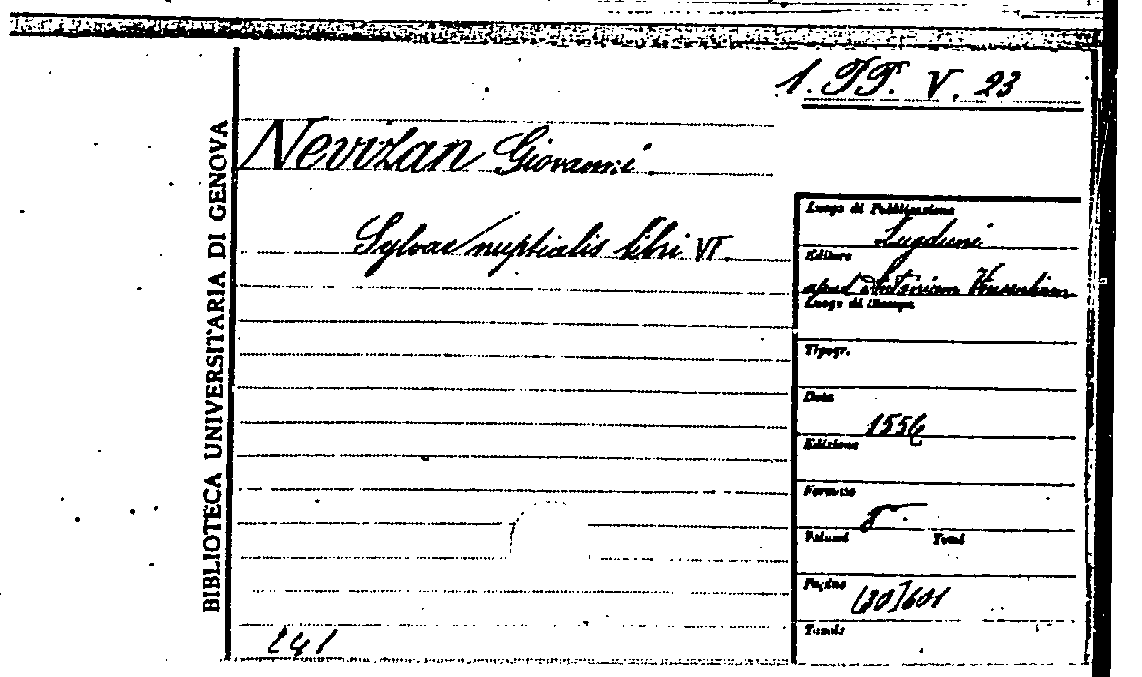 1. TT. V. 23
BIBLIOTECA UNIVERSITARIA DI GENOVA
Nevizan Giovanni
Sylvae nuptialis libri VI.
Luogo di Pubblicazione
Lugduni
Editore
apud Antonium
Luogo di Stampa
Tipogr.
Data
1556
Edizione
Formato
8°.
Volumi Tomi
Pagine
(30)601
Tavole
241